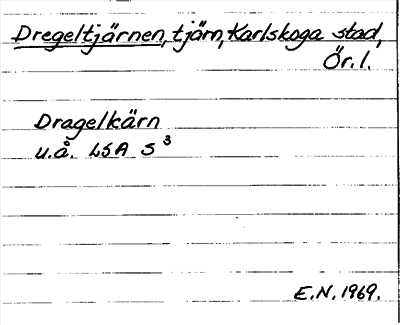 Dregeltjärnen, tjärn, Karlskoga stad,
Ör. l.
Dragelkärn
u.å. LSA S³
E.N. 1969.